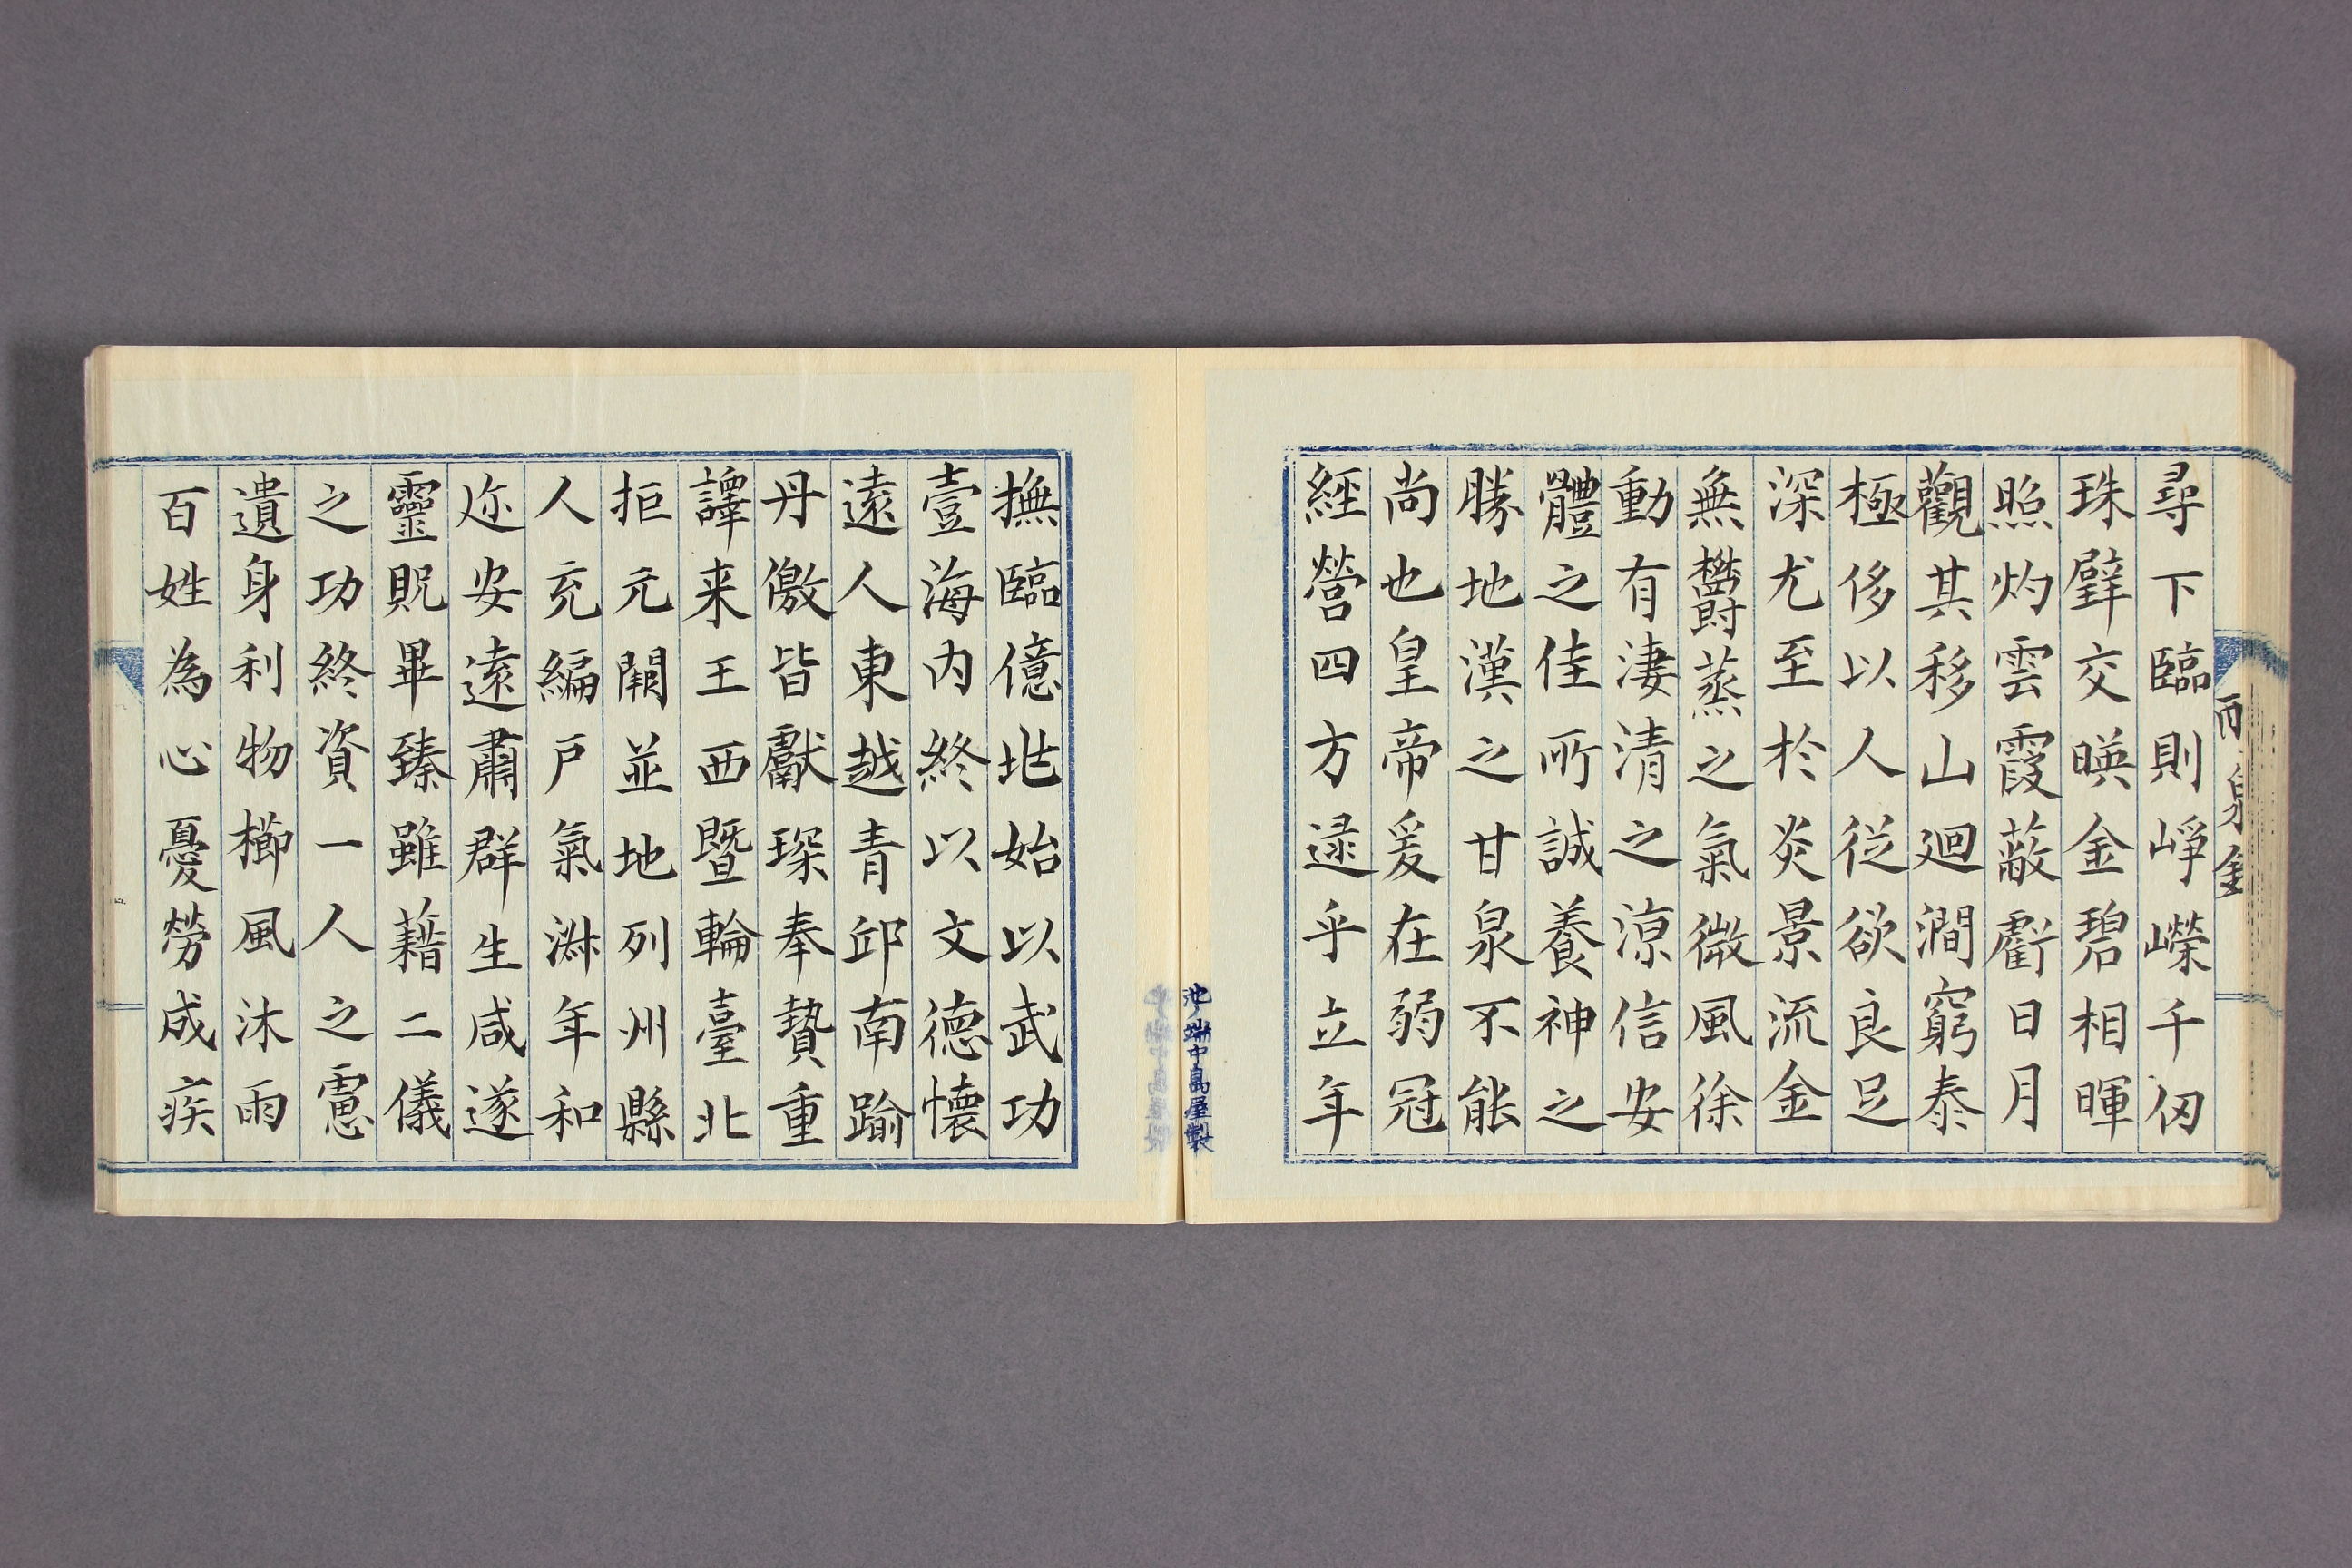 尋下臨則崢嶸千仞
珠璧交暎金碧相暉
照灼雲霞蔽虧日月
觀其移山迴澗窮泰
極侈以人從欲良足
深尤至於炎景流金
無欝蒸之氣微風徐
動有淒清之涼信安
體之佳所誠養神之
勝地漢之甘泉不能
尚也皇帝爰在弱冠
經營四方逮乎立年
撫臨億兆始以武功
壹海內終以文德懷
遠人東越青邱南踰
丹儌皆獻琛奉贄重
譯来王西暨輪臺北
拒元闕並地列州縣
人充編戶氣淋年和
迩安遠肅群生咸遂
靈貺畢臻雖藉二儀
之功終資一人之慮
遺身利物櫛風沐雨
百姓為心憂勞成疾
池ノ端中島屋製